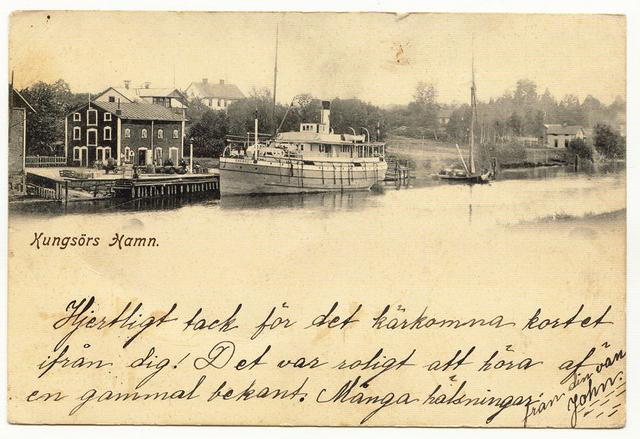 Kungsörs Hamn.
Hjertligt tack för det kärkomna kortet
ifrån dig! Det var roligt att höra af
en gammal bekant. Många hälsningar
från din vän
John.